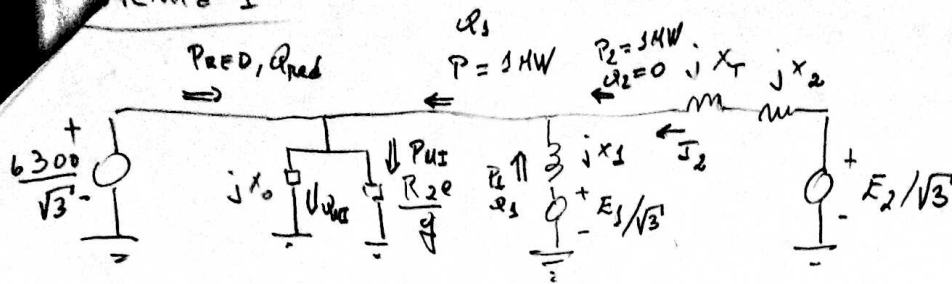 P_RED, Q_red
Q_1
P = 1 MW
P_2 = 1 MW
Q_2 = 0
j X_T
j X_2
+
6300/√3
-
j X_0
P_MI
R_2e/g
P_1
Q_1
j X_1
+
E_1/√3
-
I_2
+
E_2/√3
-